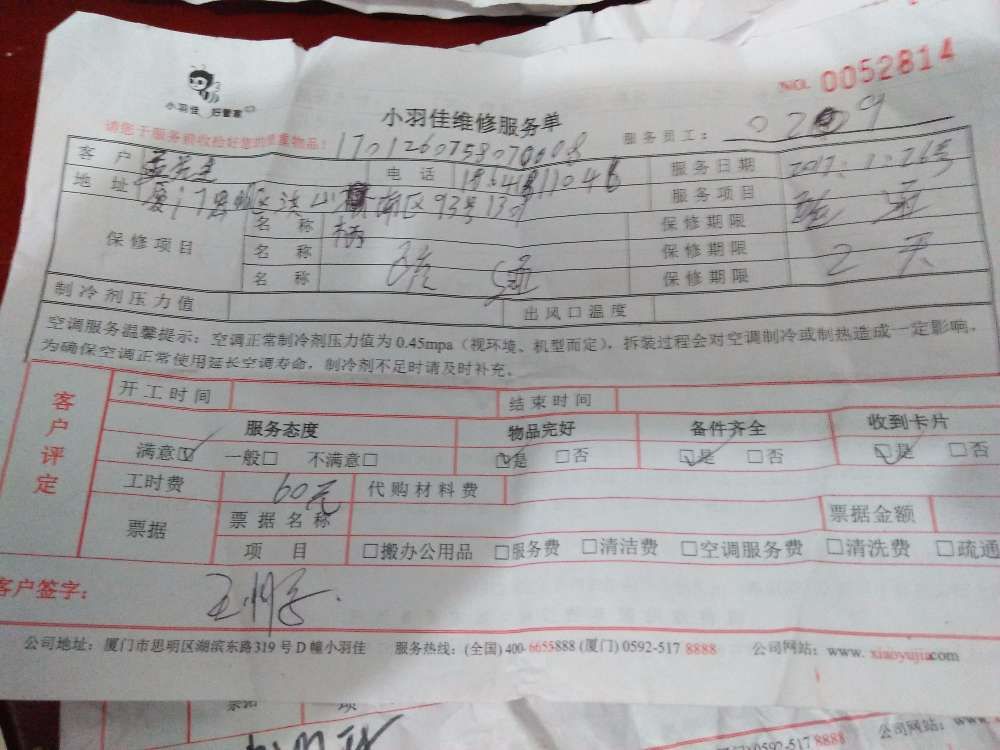 小羽佳 好管家
NO. 0052814
小羽佳维修服务单
请您于服务前收捡好您的贵重物品!
服务员工:
客户 电话 服务日期
地址 服务项目
保修项目 名称 保修期限
名称 保修期限
名称 保修期限 2天
制冷剂压力值 出风口温度
空调服务温馨提示:空调正常制冷剂压力值为0.45mpa(视环境、机型而定),拆装过程会对空调制冷或制热造成一定影响,
为确保空调正常使用延长空调寿命,制冷剂不足时请及时补充。
客户评定
开工时间 结束时间
服务态度 物品完好 备件齐全 收到卡片
满意☑ 一般□ 不满意□ ☑是 □否 ☑是 □否 ☑是 □否
工时费 60元 代购材料费
票据 票据名称 票据金额
项目 □搬办公用品 □服务费 □清洁费 □空调服务费 □清洗费 □疏通
客户签字:
公司地址:厦门市思明区湖滨东路319号D幢小羽佳 服务热线:(全国)400-6655888(厦门)0592-517 8888 公司网站:www.xiaoyujia.com
公司网站:www.
0592-517 8888